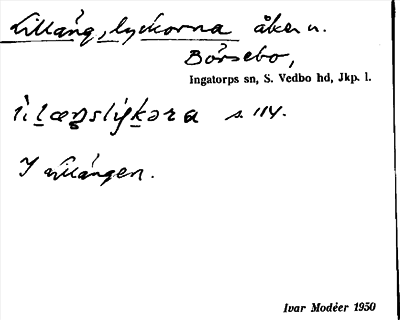 Lillängslyckorna åker u.
Börsebo,
Ingatorps sn, S. Vedbo hd, Jkp. l.
s. 114.
I Lillängen.
Ivar Modéer 1950